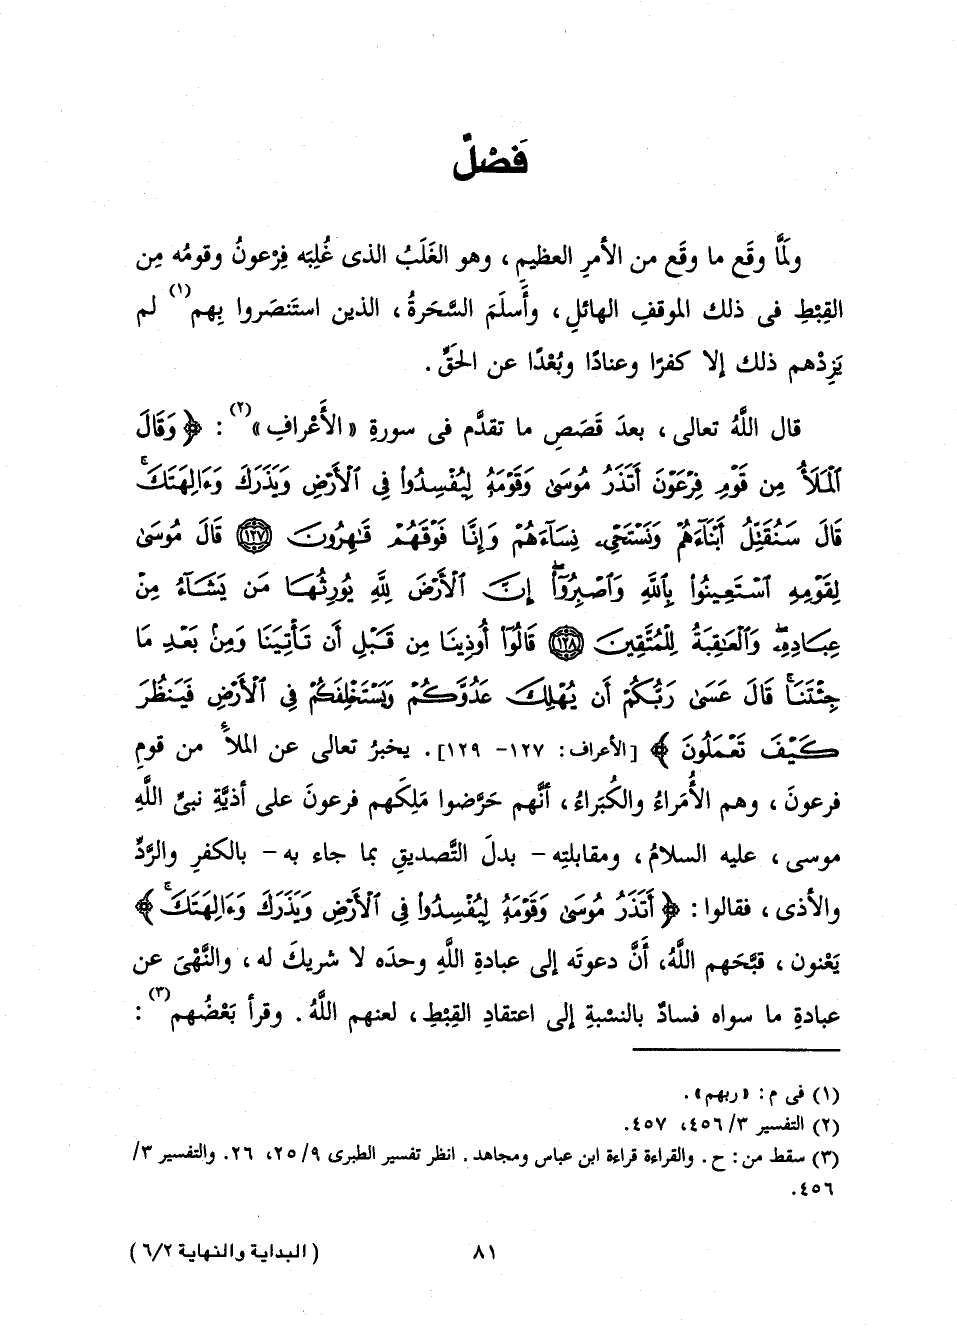 فَصْلٌ
ولَمَّا وقَع ما وقَع من الأمرِ العظيمِ، وهو الغَلَبُ الذى غُلِبَه فِرْعونُ وقومُه مِن
القِبْطِ فى ذلك الموقفِ الهائلِ، وأَسلَمَ السَّحَرةُ، الذين استَنصَروا بِهم(١) لم
يَزِدْهم ذلك إلا كفرًا وعنادًا وبُعْدًا عن الحَقِّ.
قال اللَّهُ تعالى، بعدَ قَصَصِ ما تقدَّم فى سورةِ «الأَعْرافِ»(٢): ﴿وَقَالَ
ٱلْمَلَأُ مِن قَوْمِ فِرْعَوْنَ أَتَذَرُ مُوسَىٰ وَقَوْمَهُۥ لِيُفْسِدُوا۟ فِى ٱلْأَرْضِ وَيَذَرَكَ وَءَالِهَتَكَ ۚ
قَالَ سَنُقَتِّلُ أَبْنَآءَهُمْ وَنَسْتَحْىِۦ نِسَآءَهُمْ وَإِنَّا فَوْقَهُمْ قَـٰهِرُونَ ١٢٧ قَالَ مُوسَىٰ
لِقَوْمِهِ ٱسْتَعِينُوا۟ بِٱللَّهِ وَٱصْبِرُوٓا۟ ۖ إِنَّ ٱلْأَرْضَ لِلَّهِ يُورِثُهَا مَن يَشَآءُ مِنْ
عِبَادِهِۦ ۖ وَٱلْعَـٰقِبَةُ لِلْمُتَّقِينَ ١٢٨ قَالُوٓا۟ أُوذِينَا مِن قَبْلِ أَن تَأْتِيَنَا وَمِنۢ بَعْدِ مَا
جِئْتَنَا ۚ قَالَ عَسَىٰ رَبُّكُمْ أَن يُهْلِكَ عَدُوَّكُمْ وَيَسْتَخْلِفَكُمْ فِى ٱلْأَرْضِ فَيَنظُرَ
كَيْفَ تَعْمَلُونَ﴾ [الأعراف: ١٢٧- ١٢٩]. يخبرُ تعالى عن الملأِ من قومِ
فرعونَ، وهم الأُمَراءُ والكُبَراءُ، أنَّهم حَرَّضوا مَلِكَهم فرعونَ على أذيَّةِ نبىِّ اللَّهِ
موسى، عليه السلامُ، ومقابلتِه - بدلَ التَّصديقِ بما جاء به - بالكفرِ والرَّدِّ
والأذى، فقالوا: ﴿أَتَذَرُ مُوسَىٰ وَقَوْمَهُۥ لِيُفْسِدُوا۟ فِى ٱلْأَرْضِ وَيَذَرَكَ وَءَالِهَتَكَ ۚ﴾
يَعْنون، قبَّحَهم اللَّهُ، أَنَّ دعوتَه إلى عبادةِ اللَّهِ وحدَه لا شريكَ له، والنَّهْىَ عن
عبادةِ ما سواه فسادٌ بالنسْبةِ إلى اعتقادِ القِبْطِ، لعنهم اللَّهُ. وقرأ بَعْضُهم(٣):
(١) فى م: «ربهم».
(٢) التفسير ٣/ ٤٥٦، ٤٥٧.
(٣) سقط من: ح. والقراءة قراءة ابن عباس ومجاهد. انظر تفسير الطبرى ٩/ ٢٥، ٢٦. والتفسير ٣/
٤٥٦.
٨١ (البداية والنهاية ٦/٢)